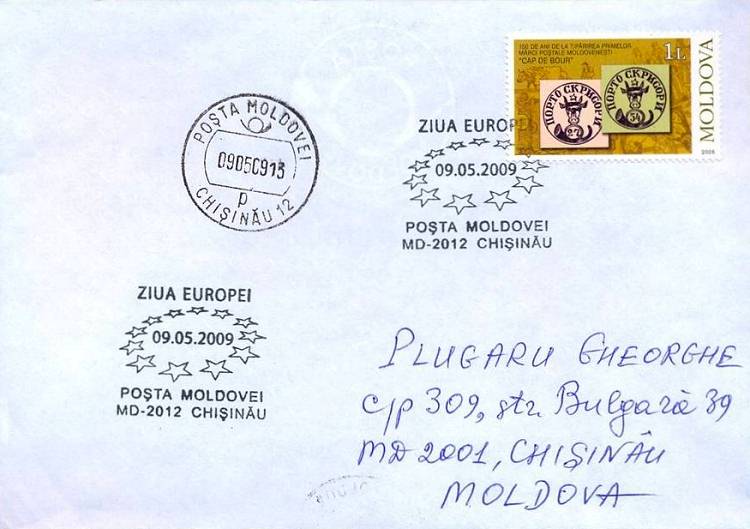 150 DE ANI DE LA TIPĂRIREA PRIMELOR
MĂRCI POȘTALE MOLDOVENEȘTI
"CAP DE BOUR"
1L
MOLDOVA
ПОРТО СКРИСОРИ
27
ПОРТО СКРИСОРИ
54
2008
POȘTA MOLDOVEI
09050913
p
CHIȘINĂU 12
ZIUA EUROPEI
09.05.2009
POȘTA MOLDOVEI
MD-2012 CHIȘINĂU
ZIUA EUROPEI
09.05.2009
POȘTA MOLDOVEI
MD-2012 CHIȘINĂU
PLUGARU GHEORGHE
c/p 309, str. Bulgară 39
MD 2001, CHIȘINĂU
MOLDOVA